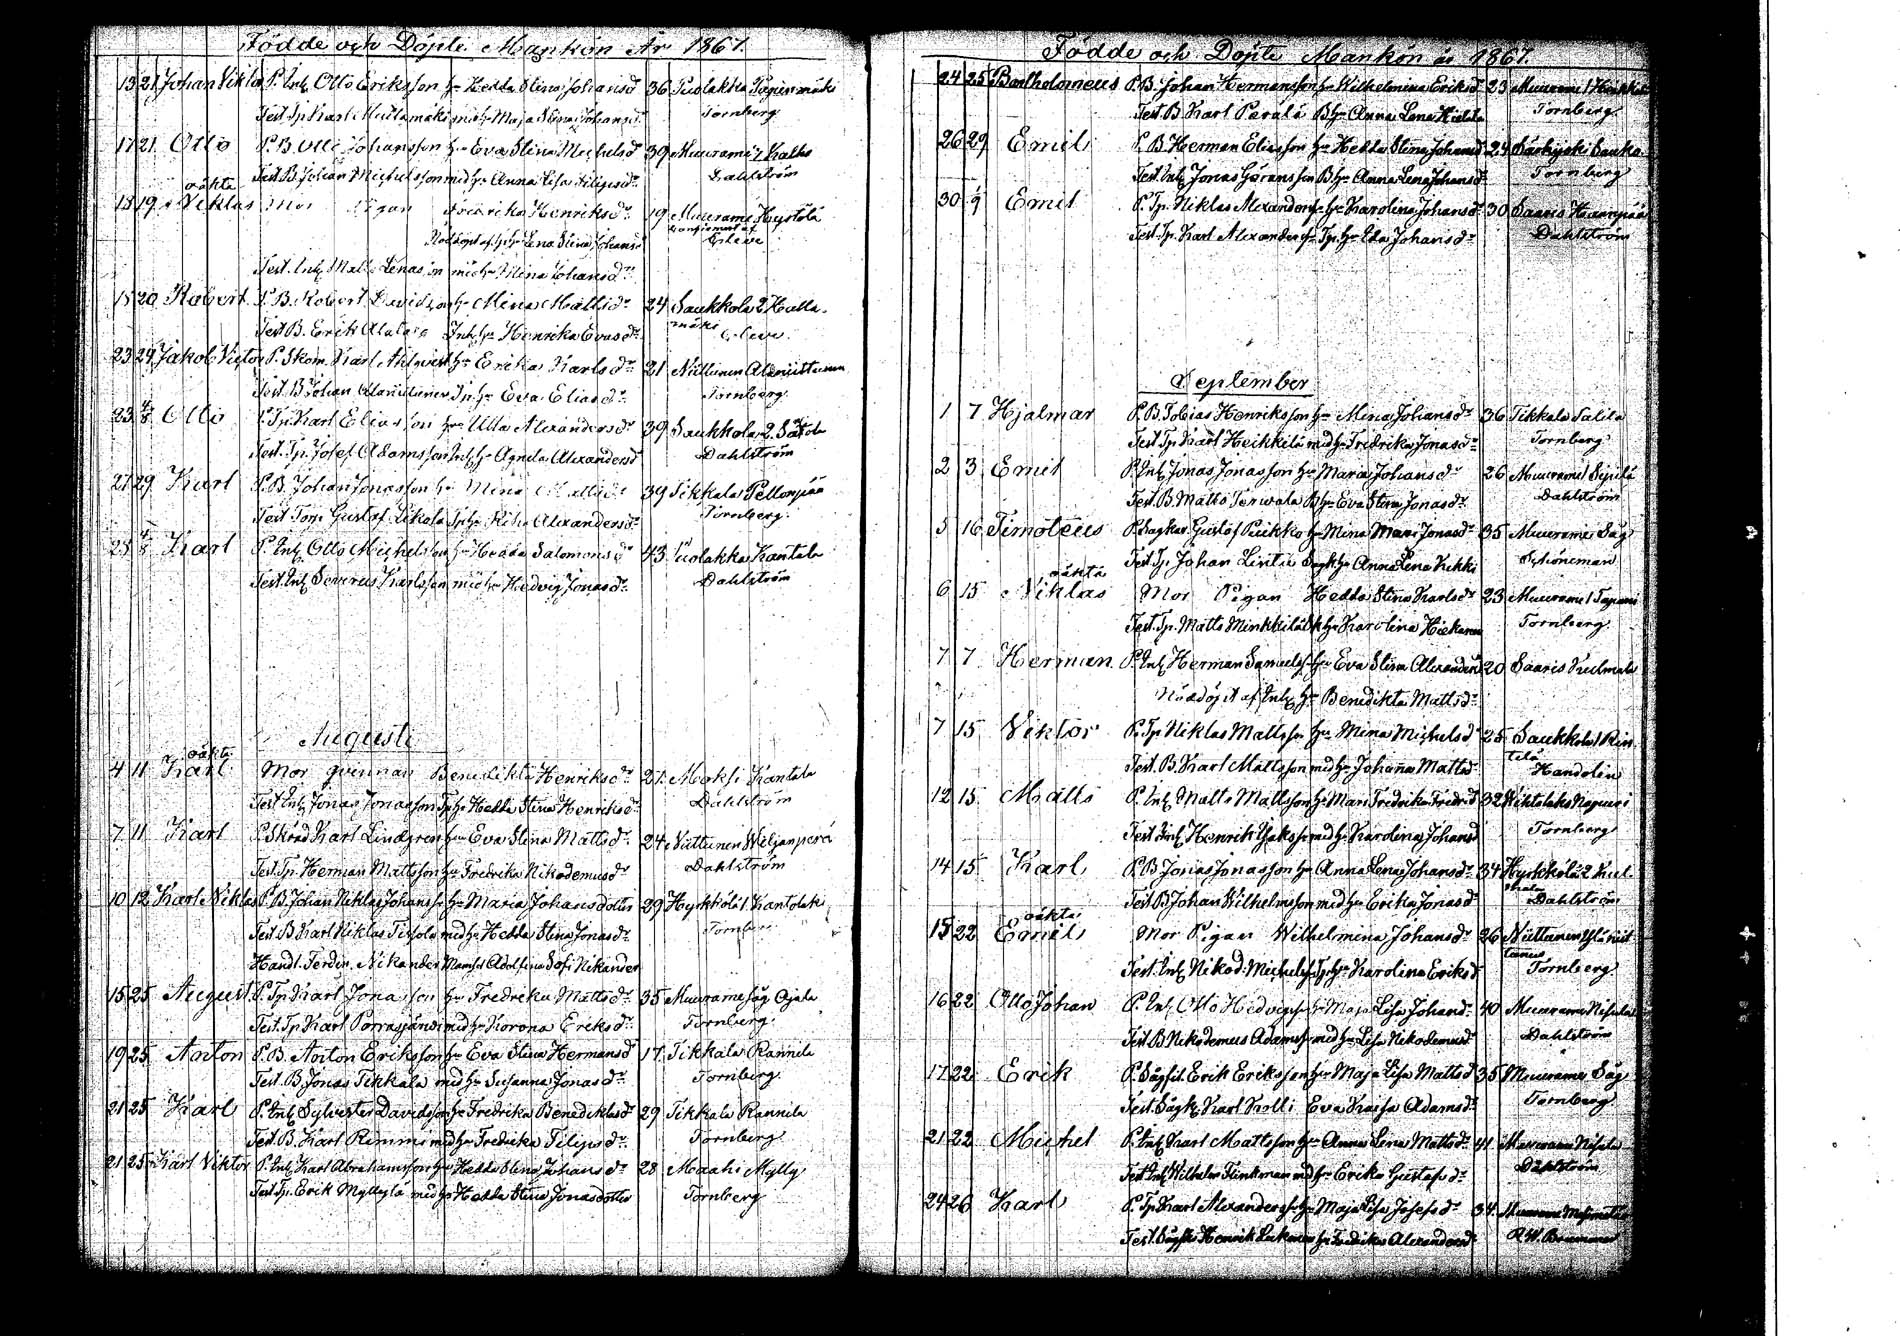 Födde och Döpte Mankön År 1867.
13 21 Johan Viktor P. Inh Otto Eriksson Hu Hedda Stina Johansdr 36 Puolakka Papinmäki
Test Tp Karl Mutamäki med Hu Maja Stina Johansdr Tornberg
17 21 Otto P. B. Otto Johansson Hu Eva Stina Michelsdr 39 Muurame 7
Test B Johan Michelsson med Hu Anna Lisa Filipsdr Dahlström
oäkta
18 19 Niklas Mor Pigan Fredrika Henriksdr 19 Muurame Hyrtölä
Nöddöpt af Hu Lena Stina Johansdr Cleve
Test. Inh Matts med Hu Mina Johansdr
18 20 Robert P. B. Robert Davidson Hu Mina Mattsdr 24 Saukkola 2 Huttu
Test B. Erik Alatalo Inh Hu Henrika Evasdr mäki Cleve
23 29 Jakob Victor P. Skom. Karl Ahlqvist Hu Erika Karlsdr 21 Niittunen Aleniittunen
Test. B Johan Alaniittunen Inh Hu Eva Eliasdr Tornberg
23 4/8 Otto P. Tp. Karl Eliasson Hu Ulla Alexandersdr 39 Saukkola 2
Test. Tp. Josef Adamsson Inh Hu Agneta Alexandersdr Dahlström
27 29 Karl P. B. Johan Jonasson Hu Mina Mattsdr 39 Tikkala Peltonpää
Test Torp Gustaf Likola Tp Hu Alexandersdr Tornberg.
28 4/8 Karl P. Inh Otto Michelsson Hu Hedda Salomonsdr 43 Puolakka Kantala
Test. Inh Severus Karlsson med Hu Hedvig Jonasdr Dahlström
Augusti
oäkta
4 11 Karl Mor qvinnan Benedikta Henriksdr 27 Moksi Kantala
Test Inh Jonas Jonasson Tp Hu Hedda Stina Henriksdr Dahlström
7 11 Karl P. Skräd Karl Lindgren Hu Eva Stina Mattsdr 24 Niittunen Weljanperä
Test. Tp. Herman Mattsson Hu Fredrika Nikodemusdr Dahlström
10 12 Karl Niklas P. B. Johan Niklas Johansson Hu Maria Johansdotter 29 Hyrkkölä 1 Kantolaki
Test. B Karl Niklas med Hu Hedda Stina Jonasdr Tornberg
Handl. Ferdin. Nikander Mamsel Adolfina Sofi Nikander
15 25 August P. Tp. Karl Jonasson Hu Fredrika Mattsdr 35 Muurame Såg Ojala
Test. Tp Karl Porrasjärvi med Hu Korona Eriksdr Tornberg
19 25 Anton P. B. Anton Eriksson Hu Eva Stina Hermansdr 17 Tikkala Rannila
Test. B. Jonas Tikkala med Hu Susanna Jonasdr Tornberg
21 25 Karl P. Inh Sylvester Davidsson Hu Fredrika Benediktsdr 29 Tikkala Rannila
Test. B. Karl Rimmi med Hu Fredrika Filipsdr Tornberg
21 25 Karl Viktor P. Inh Karl Abrahamsson Hu Hedda Stina Johansdr 28 Maahi Mylly
Test. Tp. Erik Myllylä med Hu Hedda Stina Jonasdotter Tornberg
Födde och Döpte Mankön år 1867.
24 25 Bartholomeus P. B. Johan Hermansson Hu Wilhelmina Eriksdr 23 Muurame 1 Heikkilä
Test B Karl Perälä B Hu Anna Lena Tornberg
26 29 Emil P. B. Herman Eliasson Hu Hedda Stina Johansdr 24 Särkijoki Sauko
Test. Inh Jonas Göransson B Hu Anna Lena Johansdr Tornberg
30 1/9 Emil P. Tp. Niklas Alexanderss. Hu Karolina Johansdr 30 Saaris Haanpää
Test. Tp. Karl Alexanderss. Tp. Hu Eda Johansdr Dahlström
September
1 7 Hjalmar P. B. Tobias Henriksson Hu Mina Johansdr 36 Tikkala Salila
Test. Tp Karl Heikkilä med Hu Fredrika Jonasdr Tornberg
2 3 Emil P. Inh Jonas Jonasson Hu Maria Johansdr 26 Muurame 1 Seppälä
Test. B Matts Terwala B Hu Eva Stina Jonasdr Dahlström
5 16 Timoteus P. Sagkar. Gustaf Puikko Hu Mina Maria Jonasdr 35 Muurame Såg
Test. Tp. Johan Lintu Sagk Hu Anna Lena Kukki Schöneman
oäkta
6 15 Niklas Mor Pigan Hedda Stina Karlsdr 23 Muurame 1 Tapani
Test. Tp. Matts Minkkilä Hu Karolina Tornberg
7 7 Herman P. Inh Herman Samuelss. Hu Eva Stina Alexandersdr 20 Saaris Kulmala
Nöddöpt af Inh Hu Benedikta Mattsdr
7 15 Viktor P. Tp Niklas Mattsson Hu Mina Michelsdr 25 Saukkola 1 Rin
Test. B. Karl Mattsson med Hu Johanna Mattsdr telä Handolin
12 15 Matts P. Inh Matts Mattsson Hu Mari Fredrika Fredrdr 32 Wihtalaks Napuri
Test Inh Henrik Isaksson med Hu Karolina Johansdr Tornberg
14 15 Karl P. B Jonas Jonasson Hu Anna Lena Johansdr 34 Hyrkkölä 2 Kul
Test B Johan Wilhelmsson med Hu Erika Jonasdr mala Dahlström
oäkta
15 22 Emil Mor Pigan Wilhelmina Johansdr 26 Niittunen Ylä niit
Test. Inh Nikod: Michelss. Tp. Hu Karolina Eriksdr tunen Tornberg
16 22 Otto Johan P. Inh Otto Hedvigss. Hu Maja Lisa Johansdr 40 Muurame Nisula
Test. B Nikodemus Adamss. med Hu Lisa Nikodemusdr Dahlström
17 22 Erik P. Sågfil. Erik Eriksson Hu Maja Lisa Mattsdr 35 Muurame Såg
Test. Sågk. Karl Kolli Eva Kajsa Adamsdr Tornberg
21 22 Michel P. Inh Karl Mattsson Hu Anna Lena Mattsdr 41 Muurame Nisula
Test Inh Wilhelm Flinkman med Hu Erika Gustafsdr Dahlström
24 26 Karl P. Tp. Karl Alexanderss. Hu Maja Lisa Josefsdr 34 Muurame
Test. Sågk. Henrik Hu Fredrika Alexandersdr Brummer